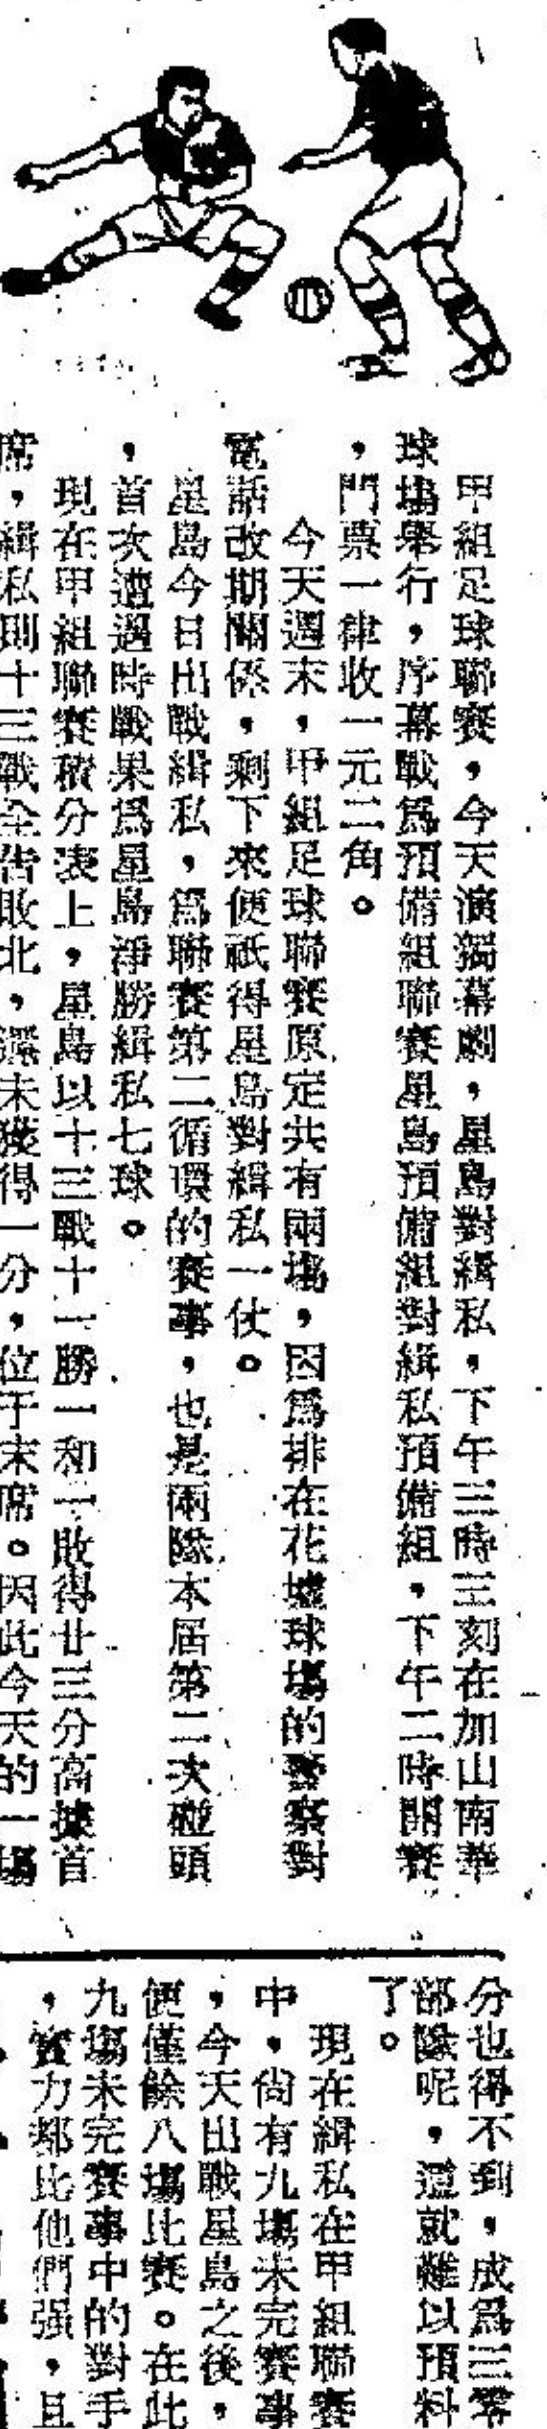 甲組足球聯賽，今天演獨幕劇，星島對緝私，下午三時三刻在加山南華
球場舉行，序幕戰爲預備組聯賽星島預備組對緝私預備組，下午二時開賽
，門票一律收一元二角。
今天週末，甲組足球聯賽原定共有兩場，因爲排在花墟球場的警察對
電話改期關係，剩下來便祇得星島對緝私一仗。
星島今日出戰緝私，爲聯賽第二循環的賽事，也是兩隊本屆第二次碰頭
，首次遭遇時戰果爲星島淨勝緝私七球。
現在甲組聯賽積分表上，星島以十三戰十一勝一和一敗得廿三分高據首
席，緝私則十三戰全告敗北，還未獲得一分，位于末席。因此今天的一場
分也得不到，成爲三零
部隊呢，這就難以預料
了。
現在緝私在甲組聯賽
中，尙有九場未完賽事
，今天出戰星島之後，
便僅餘八場比賽。在此
九場未完賽事中的對手
，實力都比他們强，且